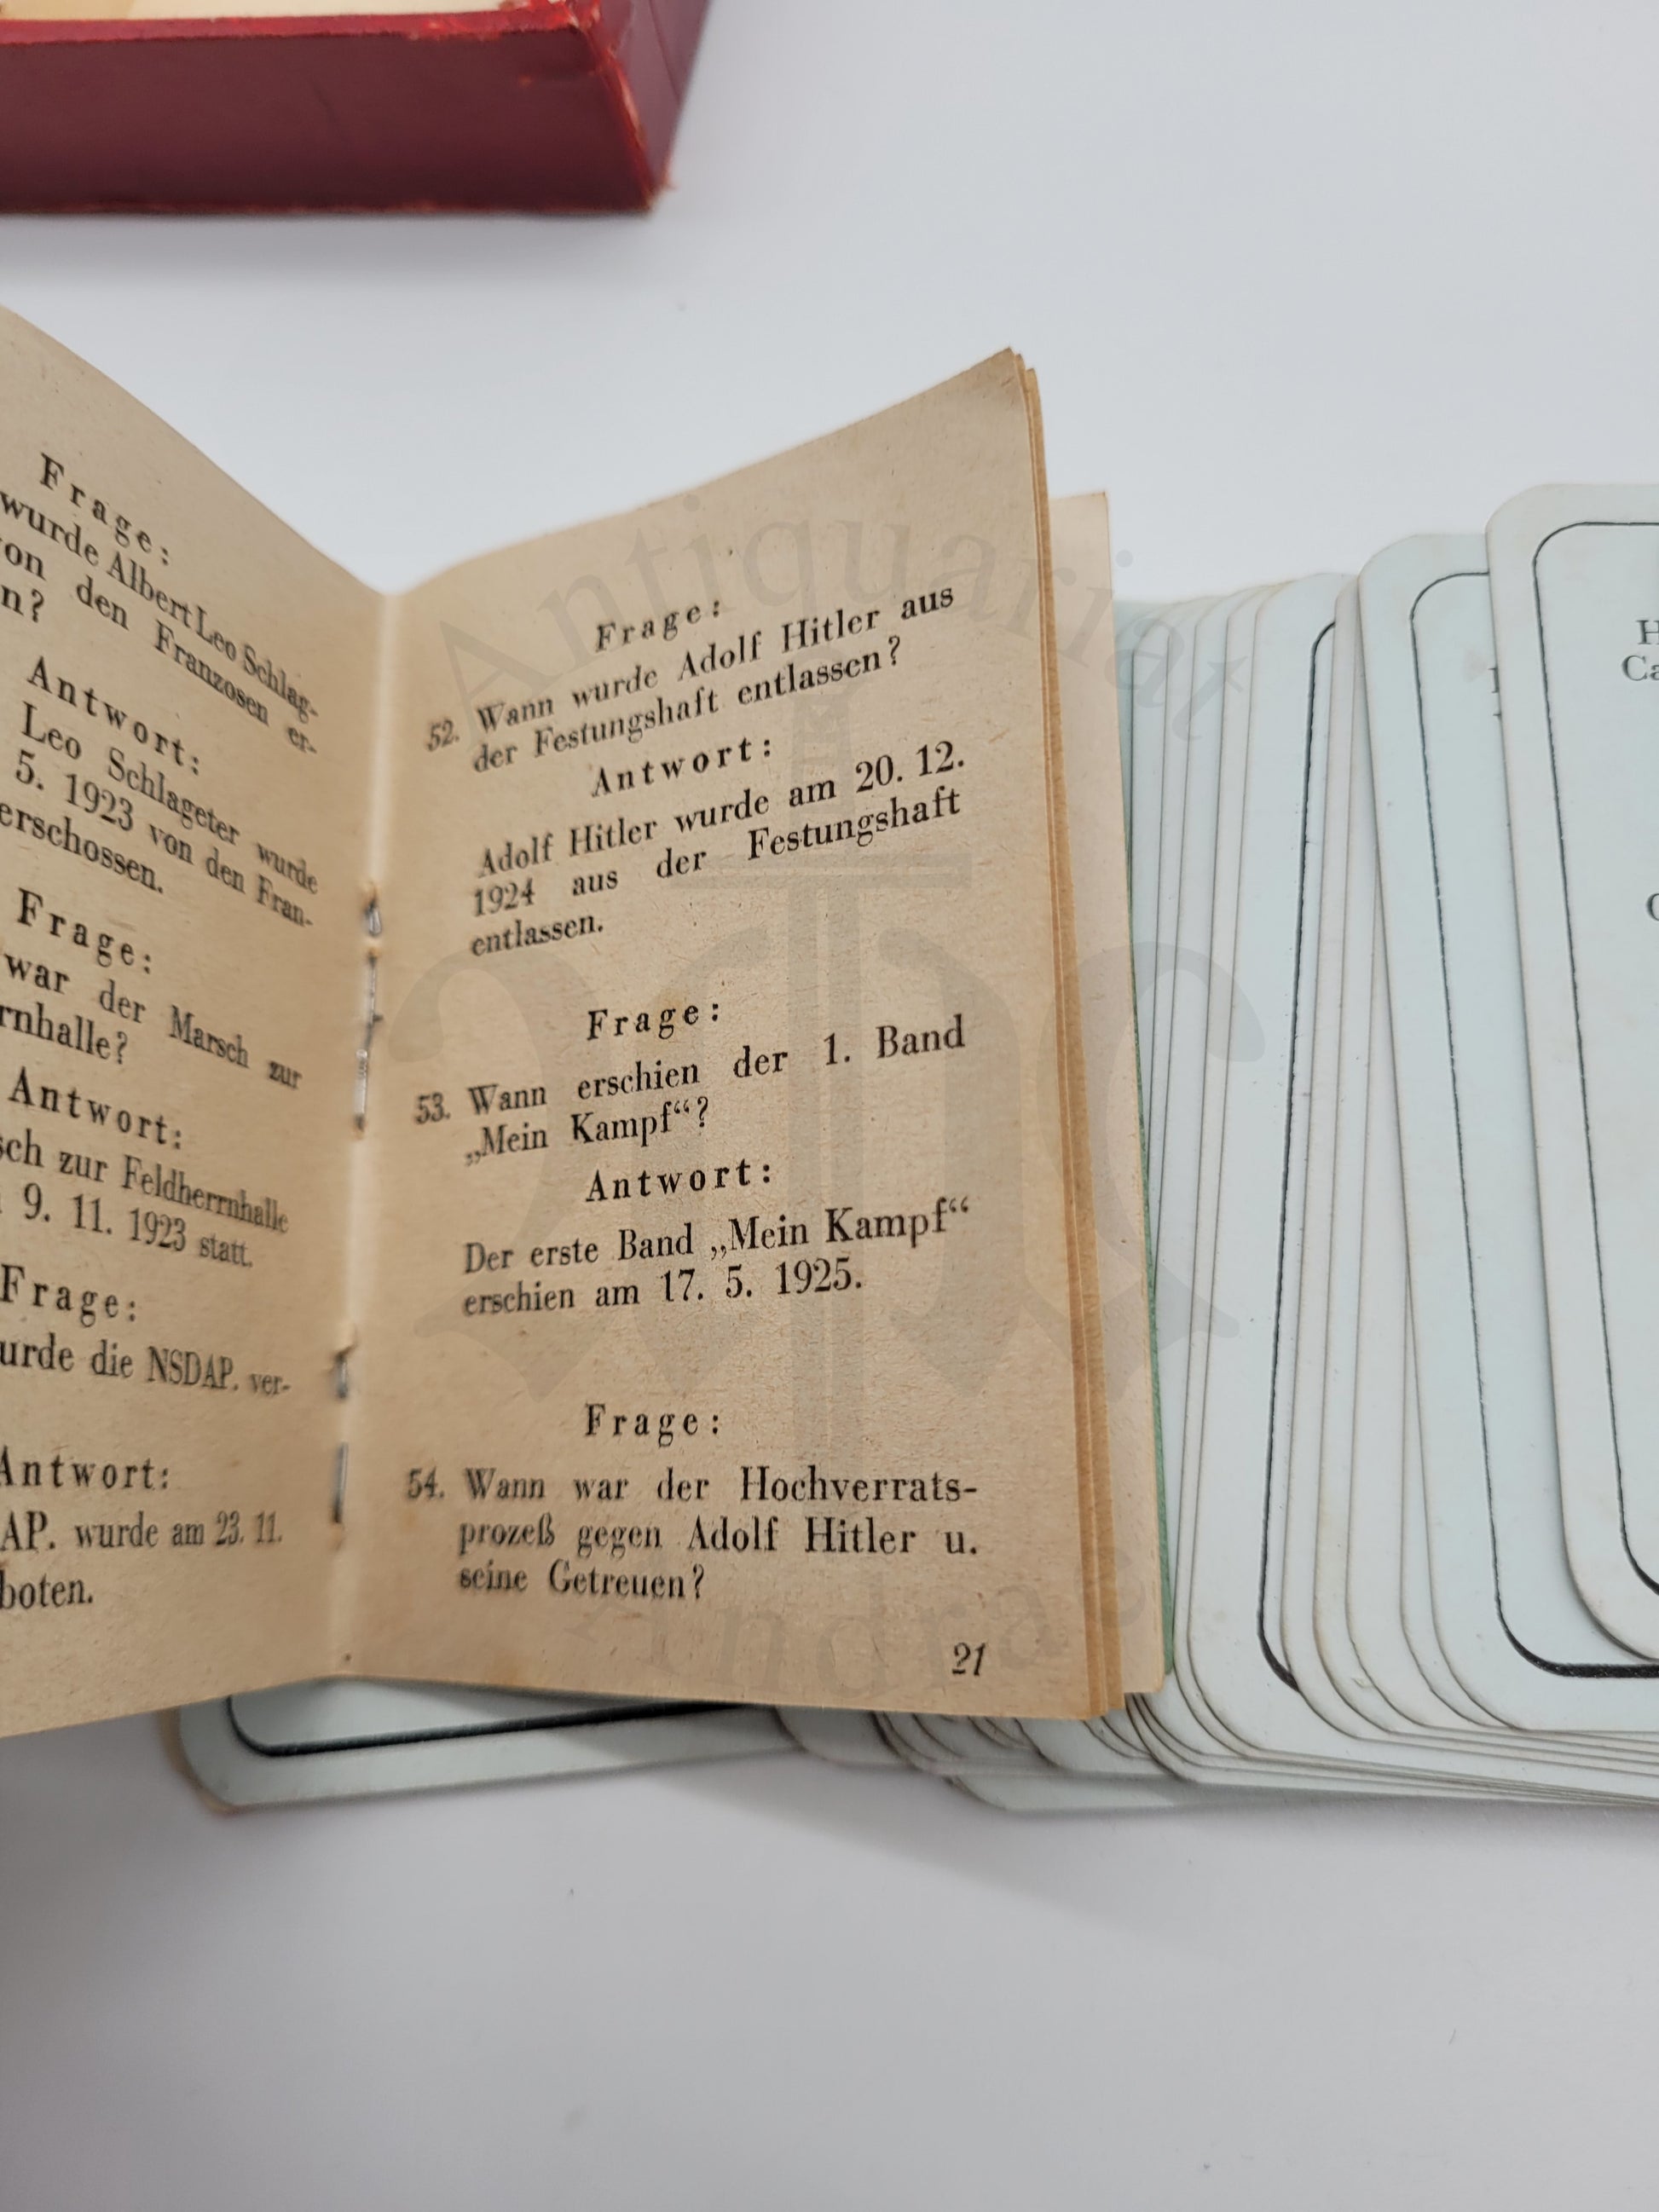 Frage:
wurde Albert Leo Schlag-
von den Franzosen er-
n?
Antwort:
Leo Schlageter wurde
5. 1923 von den Fran-
erschossen.
Frage:
war der Marsch zur
rnhalle?
Antwort:
sch zur Feldherrnhalle
9. 11. 1923 statt.
Frage:
urde die NSDAP. ver-
Antwort:
AP. wurde am 23. 11.
boten.
Frage:
52. Wann wurde Adolf Hitler aus
der Festungshaft entlassen?
Antwort:
Adolf Hitler wurde am 20. 12.
1924 aus der Festungshaft
entlassen.
Frage:
53. Wann erschien der 1. Band
„Mein Kampf“?
Antwort:
Der erste Band „Mein Kampf“
erschien am 17. 5. 1925.
Frage:
54. Wann war der Hochverrats-
prozeß gegen Adolf Hitler u.
seine Getreuen?
21
H
Ca
Antiquariat